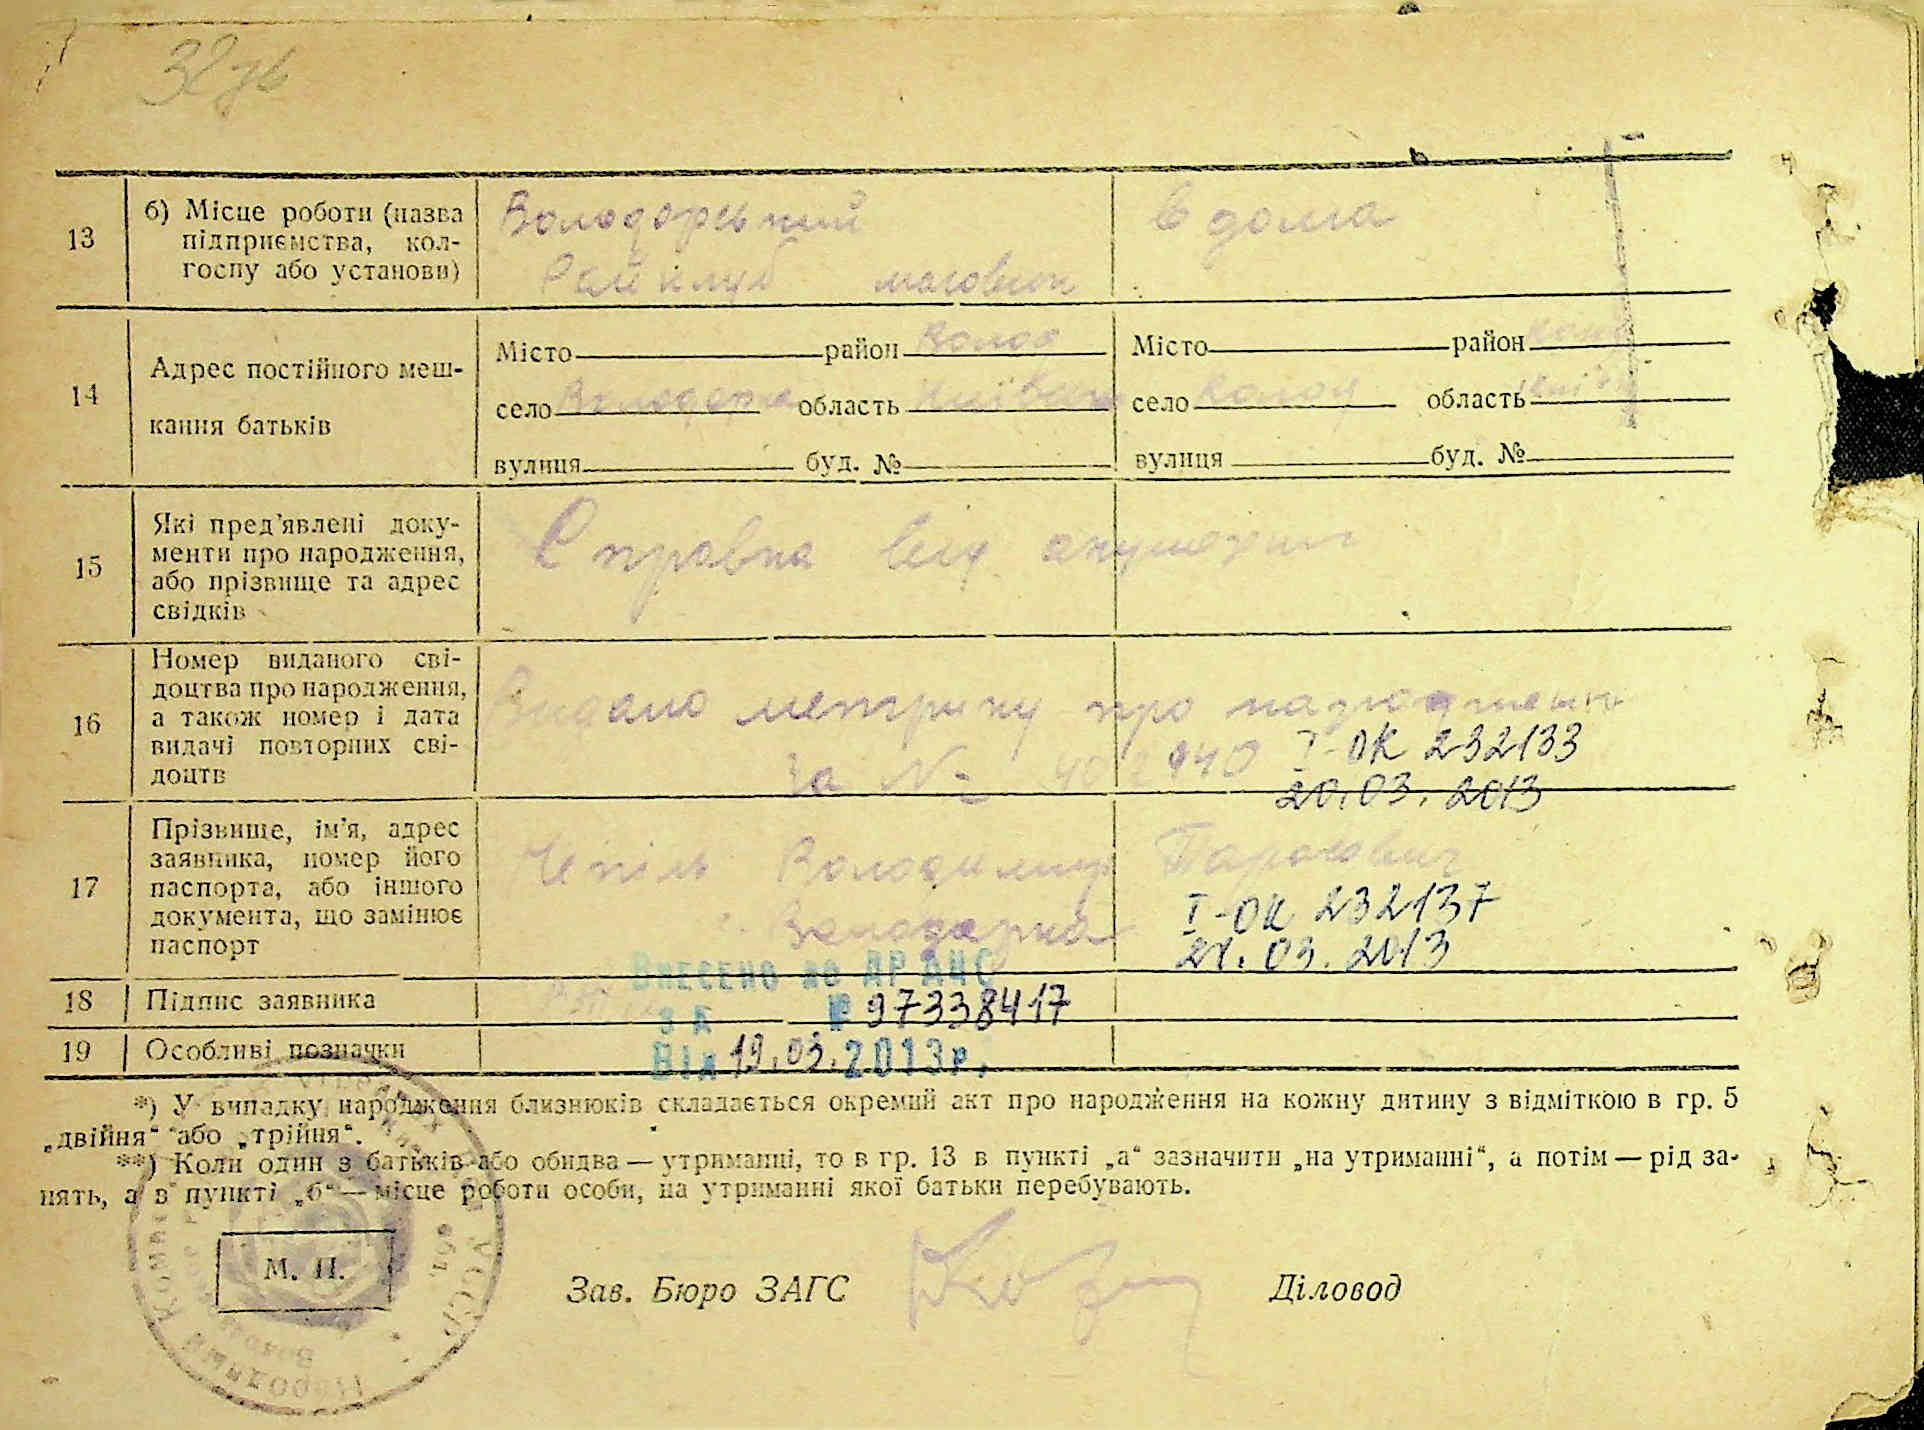 13
б) Місце роботи (назва
підприємства, кол-
госпу або установи)
Володарський
Райклуб
в дома
14
Адрес постійного меш-
кання батьків
Місто район Волод
село Володарка область Київська
вулиця буд. №
Місто район
село Волод область
вулиця буд. №
15
Які пред'явлені доку-
менти про народження,
або прізвище та адрес
свідків
Справка від акушерки
16
Номер виданого сві-
доцтва про народження,
а також номер і дата
видачі повторних сві-
доцтв
Видано метрику про народження
за №
I-ОК 232133
20.03.2013
17
Прізвище, ім'я, адрес
заявника, номер його
паспорта, або іншого
документа, що замінює
паспорт
Володимир
Володарка
I-ОК 232137
21.03.2013
18
Підпис заявника
Внесено до ДРАЦС
за № 97338417
Від 19.03.2013р.
19
Особливі позначки
*) У випадку народження близнюків складається окремий акт про народження на кожну дитину з відміткою в гр. 5
„двійня“ або „трійня“.
**) Коли один з батьків або обидва — утриманці, то в гр. 13 в пункті „а“ зазначити „на утриманні“, а потім — рід за-
нять, а в пункті „б“ — місце роботи особи, на утриманні якої батьки перебувають.
М. П.
Зав. Бюро ЗАГС
Діловод